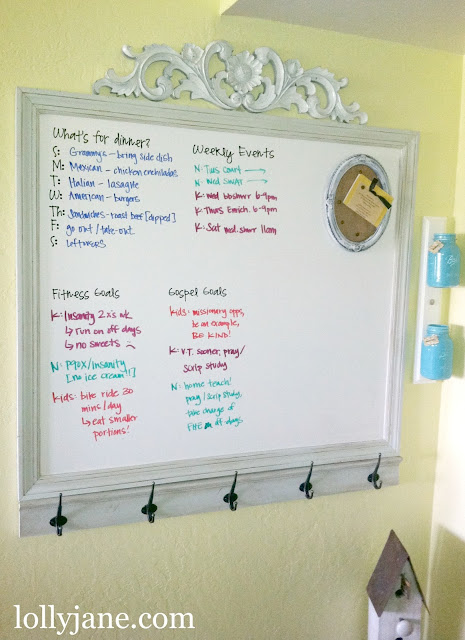 What's for dinner?
S: Grammy's - bring side dish
M: Mexican - chicken enchiladas
T: Italian - lasagne
W: American - burgers
Th: Sandwiches - roast beef [dipped]
F: go out / take-out
S: leftovers
Weekly Events
N: Tues court →
N: Wed →
K: wed bbshwr 6-9pm
K: Thurs Enrich. 6-9pm
K: Sat wed. shwr 11am
Fitness Goals
K: Insanity 2x's wk
↳ run on off days
↳ no sweets
N: P90X/insanity
[no ice cream!!]
kids: bike ride 30
mins/day
↳ eat smaller
portions!
Gospel Goals
kids: missionary opps,
be an example,
BE KIND!
K: V.T. sooner, pray/
scrip study
N: home teach!
pray/scrip study,
take charge of
FHE off days
lollyjane.com